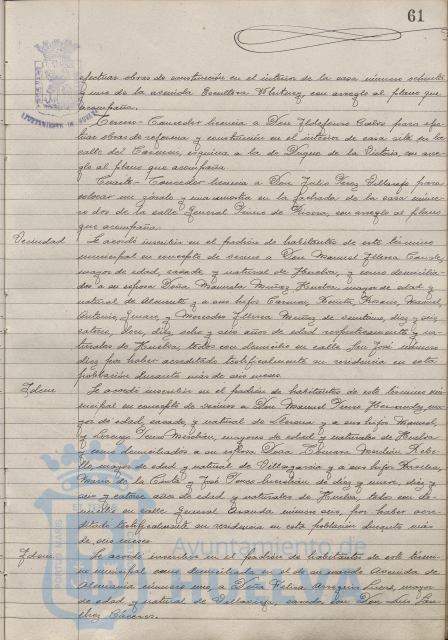 61
efectuar obras de construcción en el interior de la casa número ochenta
y uno de la avenida Escultora Whitney, con arreglo al plano que
acompaña.
Tercero - Conceder licencia a Don Ildefonso para efec
tuar obras de reforma y construcción en el interior de casa sita en la
calle del Carmen, esquina a la de Duque de la Victoria, con arre
glo al plano que acompaña.
Cuarto - Conceder licencia a Don Julio Pérez para
colocar un y una muestra en la fachada de la casa núme
ro dos de la calle General Primo de Rivera, con arreglo al plano
que acompaña.
Vecindad Se acordó inscribir en el padrón de habitantes de este término
municipal en concepto de vecino a Don Manuel
mayor de edad, casado y natural de Huelva, y como domicilia
dos a su esposa Doña Manuela Muñoz mayor de edad y
natural de y a sus hijos Carmen, Rosario, Manuel,
Antonio, Juan y Mercedes Muñoz de veintuno, diez y seis,
catorce, doce, diez, ocho y seis años de edad respectivamente y na
turales de Huelva, todos con domicilio en calle San José número
diez por haber acreditado testificalmente su residencia en esta
población durante más de seis meses.
Idem Se acordó inscribir en el padrón de habitantes de este término mu
nicipal en concepto de vecinos a Don Manuel Hernández, ma
yor de edad, casado y natural de y a sus hijos Manuel,
y mayores de edad y naturales de Huelva
y como domiciliados a su esposa Doña
mayor de edad y natural de Villagarcía y a sus hijos
María de la Cinta y José de diez y nueve, diez y
seis y catorce años de edad y naturales de Huelva, todos con do
micilio en calle General Aranda número seis, por haber acre
ditado testificalmente su residencia en esta población durante más
de seis meses.
Idem Se acordó inscribir en el padrón de habitantes de este térmi
no municipal como domiciliada en el de su marido Avenida de
Alemania número uno, a Doña mayor
de edad y natural de casada con Don Luis
Ayuntamiento de
HUELVA
PORTUS MARIS